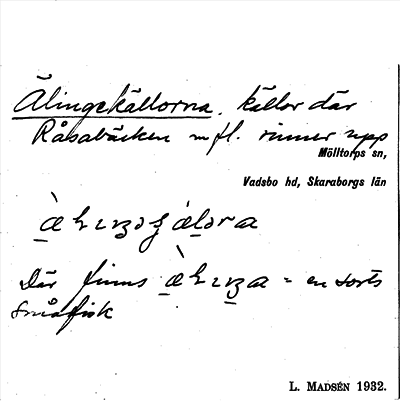 Älingekällorna, källor där
Råsabäcken m fl. rinner upp
Mölltorps sn,
Vadsbo hd, Skaraborgs län
Där finns = en sorts
småfisk
L. MADSÉN 1932.